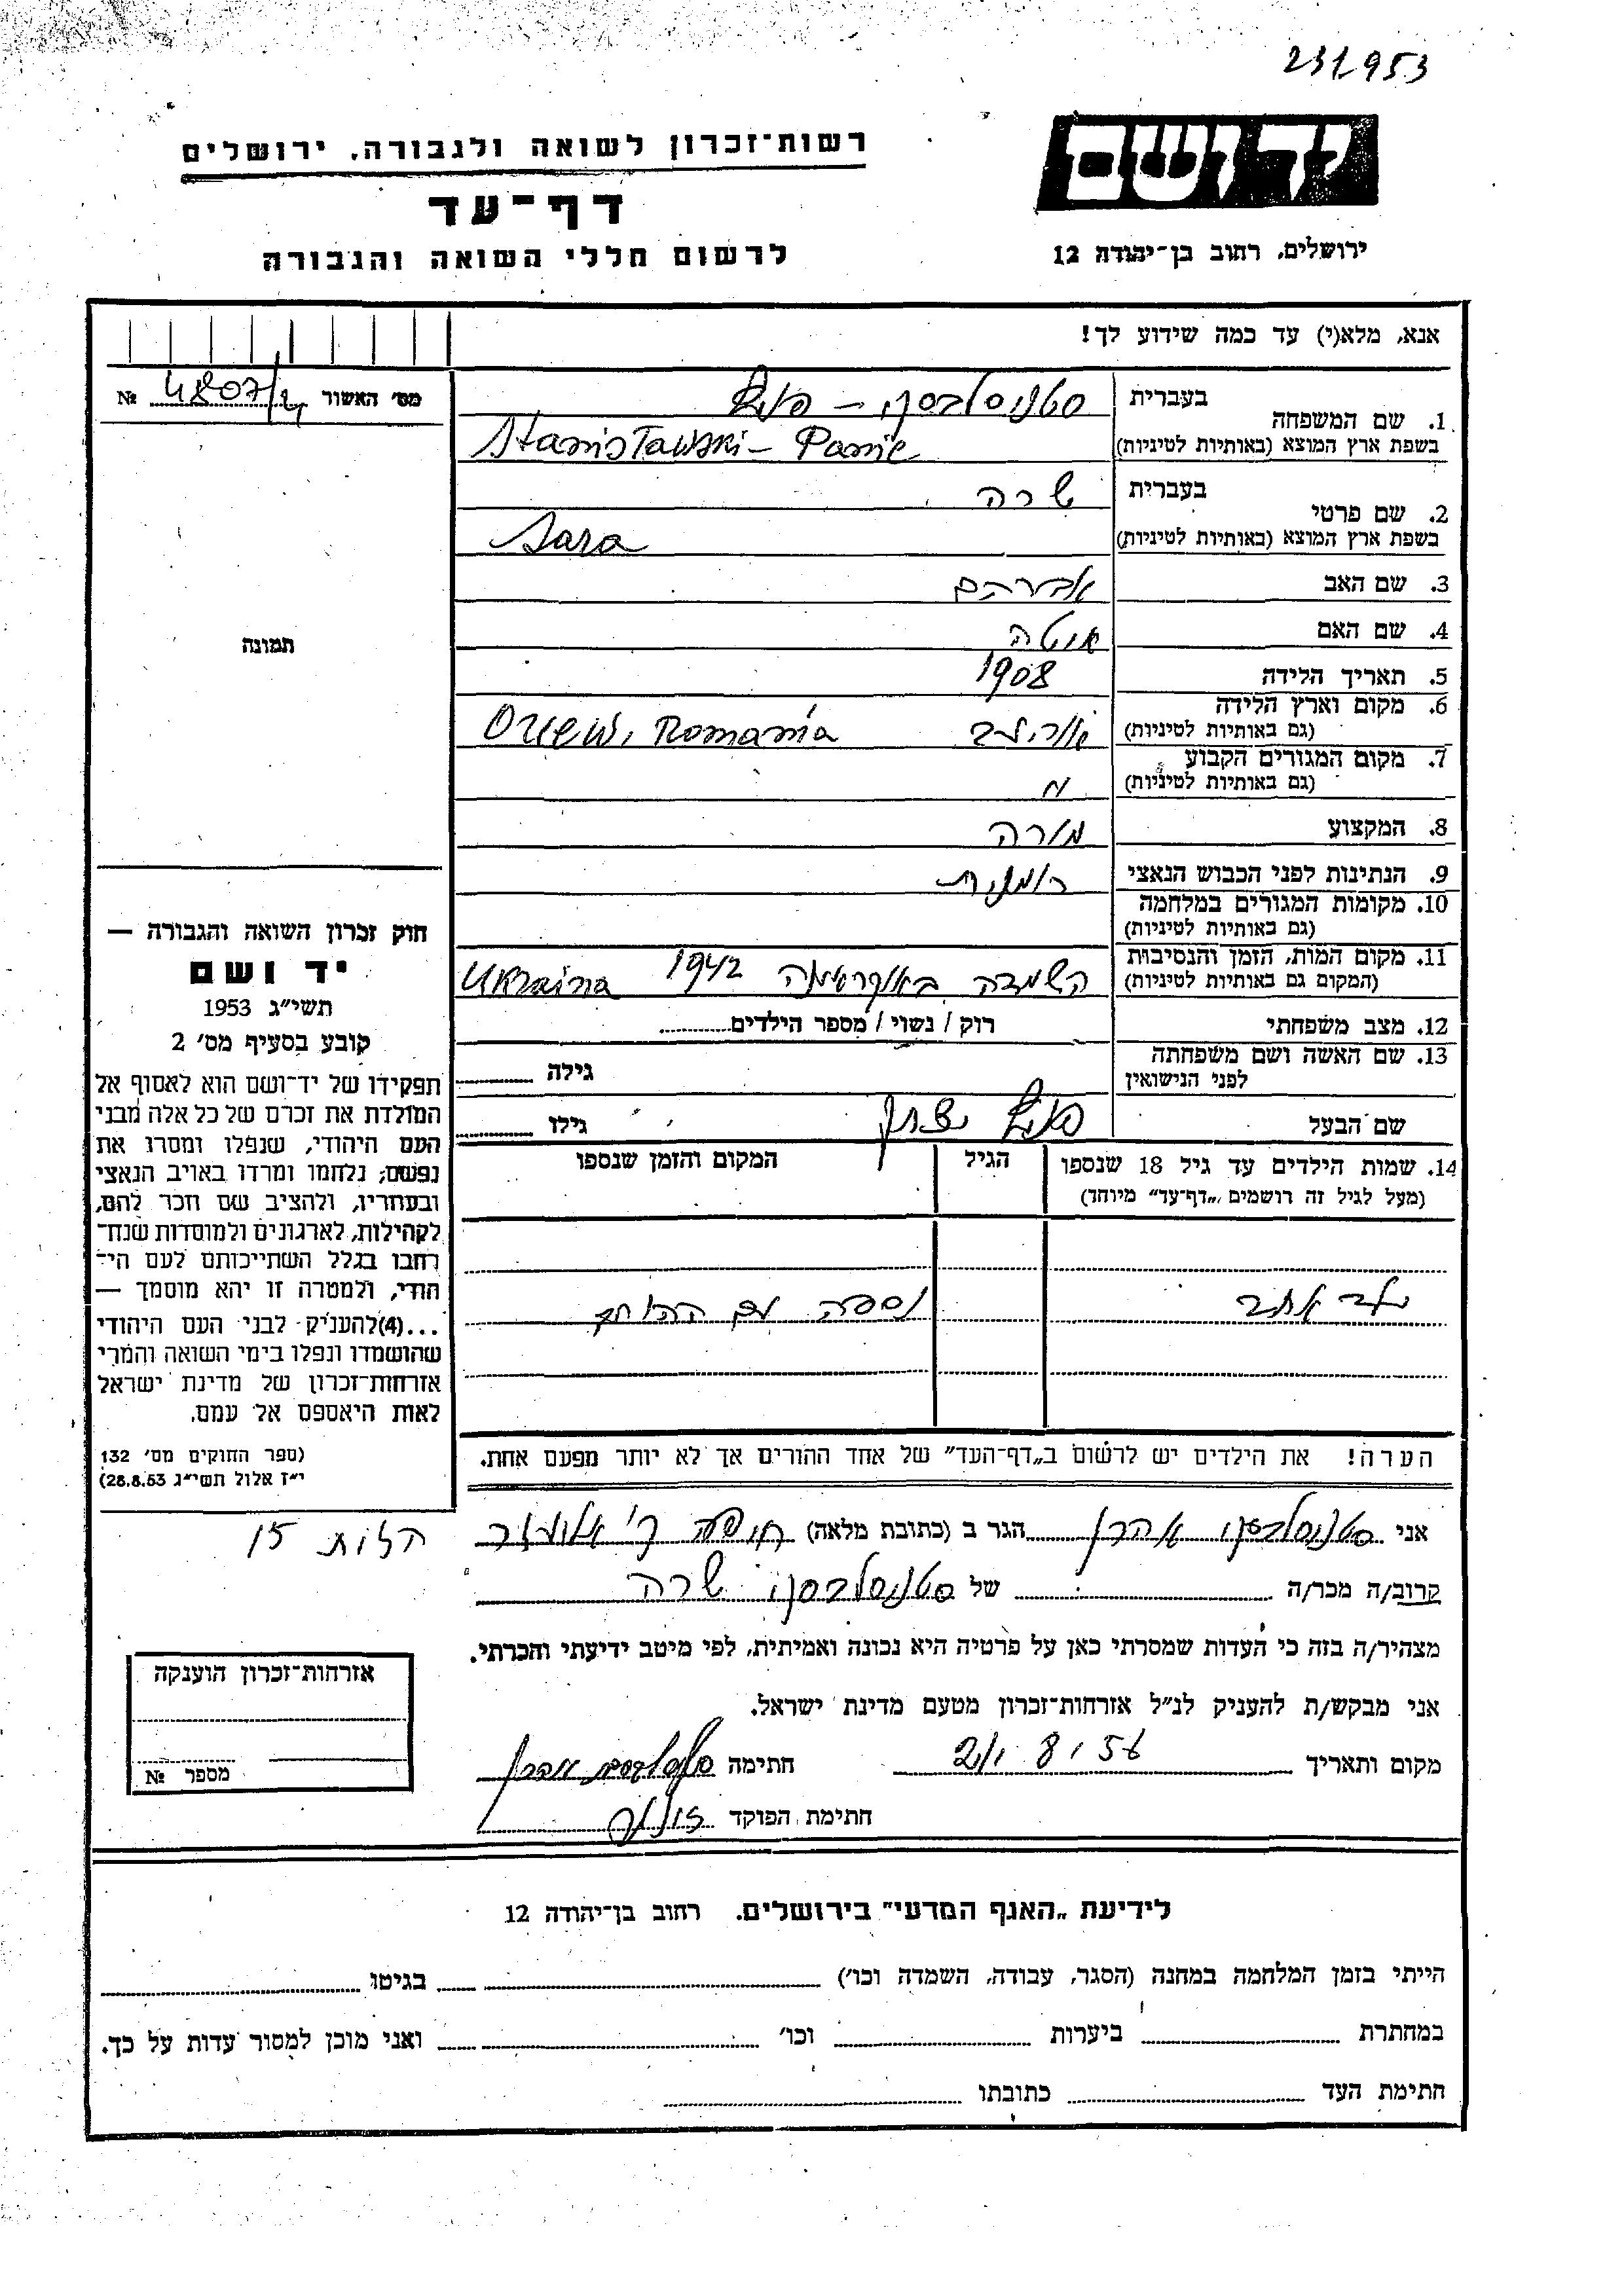 231953
יד ושם
רשות־זכרון לשואה ולגבורה, ירושלים
דף־עד
לרשום חללי השואה והגבורה
ירושלים, רחוב בן־יהודה 12
אנא, מלא(י) עד כמה שידוע לך!
מס׳ האשור 4807/2 №
1. שם המשפחה בעברית סטניסלבסקי - פניץ
בשפת ארץ המוצא (באותיות לטיניות) Stanisławski - Panic
2. שם פרטי בעברית שרה
בשפת ארץ המוצא (באותיות לטיניות) Sara
3. שם האב אברהם
4. שם האם
תמונה
5. תאריך הלידה 1908
6. מקום וארץ הלידה
(גם באותיות לטיניות) Romania
7. מקום המגורים הקבוע
(גם באותיות לטיניות)
8. המקצוע מורה
9. הנתינות לפני הכבוש הנאצי רומנית
10. מקומות המגורים במלחמה
(גם באותיות לטיניות)
11. מקום המות, הזמן והנסיבות
(המקום גם באותיות לטיניות) השמדה באוקראינה 1942 Ukraina
12. מצב משפחתי רוק / נשוי / מספר הילדים
13. שם האשה ושם משפחתה
לפני הנישואין גילה
שם הבעל פניץ יצחק גילו
14. שמות הילדים עד גיל 18 שנספו הגיל המקום והזמן שנספו
(מעל לגיל זה רושמים „דף־עד״ מיוחד)
ילד אחד נספה עם ההורים
הערה! את הילדים יש לרשום ב„דף־העד״ של אחד ההורים אך לא יותר מפעם אחת.
חוק זכרון השואה והגבורה —
יד ושם
תשי״ג 1953
קובע בסעיף מס׳ 2
תפקידו של יד־ושם הוא לאסוף אל
המולדת את זכרם של כל אלה מבני
העם היהודי, שנפלו ומסרו את
נפשם; נלחמו ומרדו באויב הנאצי
ובעוזריו, ולהציב שם וזכר להם,
לקהילות, לארגונים ולמוסדות שנח־
רבו בגלל השתייכותם לעם הי־
הודי, ולמטרה זו יהא מוסמך —
...(4)להעניק לבני העם היהודי
שהושמדו ונפלו בימי השואה והמרי
אזרחות־זכרון של מדינת ישראל
לאות היאספם אל עמם.
(ספר החוקים מס׳ 132
י״ז אלול תשי״ג 28.8.53)
אני סטניסלבסקי אהרן הגר ב (כתובת מלאה) חיפה
15
קרוב/ה מכר/ה של סטניסלבסקי שרה
מצהיר/ה בזה כי העדות שמסרתי כאן על פרטיה היא נכונה ואמיתית, לפי מיטב ידיעתי והכרתי.
אני מבקש/ת להעניק לנ״ל אזרחות־זכרון מטעם מדינת ישראל.
מקום ותאריך חתימה סטניסלבסקי אהרן
חתימת הפוקד
אזרחות־זכרון הוענקה
מספר №
לידיעת „האגף המדעי״ בירושלים. רחוב בן־יהודה 12
הייתי בזמן המלחמה במחנה (הסגר, עבודה, השמדה וכו׳) בגיטו
במחתרת ביערות וכו׳ ואני מוכן למסור עדות על כך.
חתימת העד כתובתו